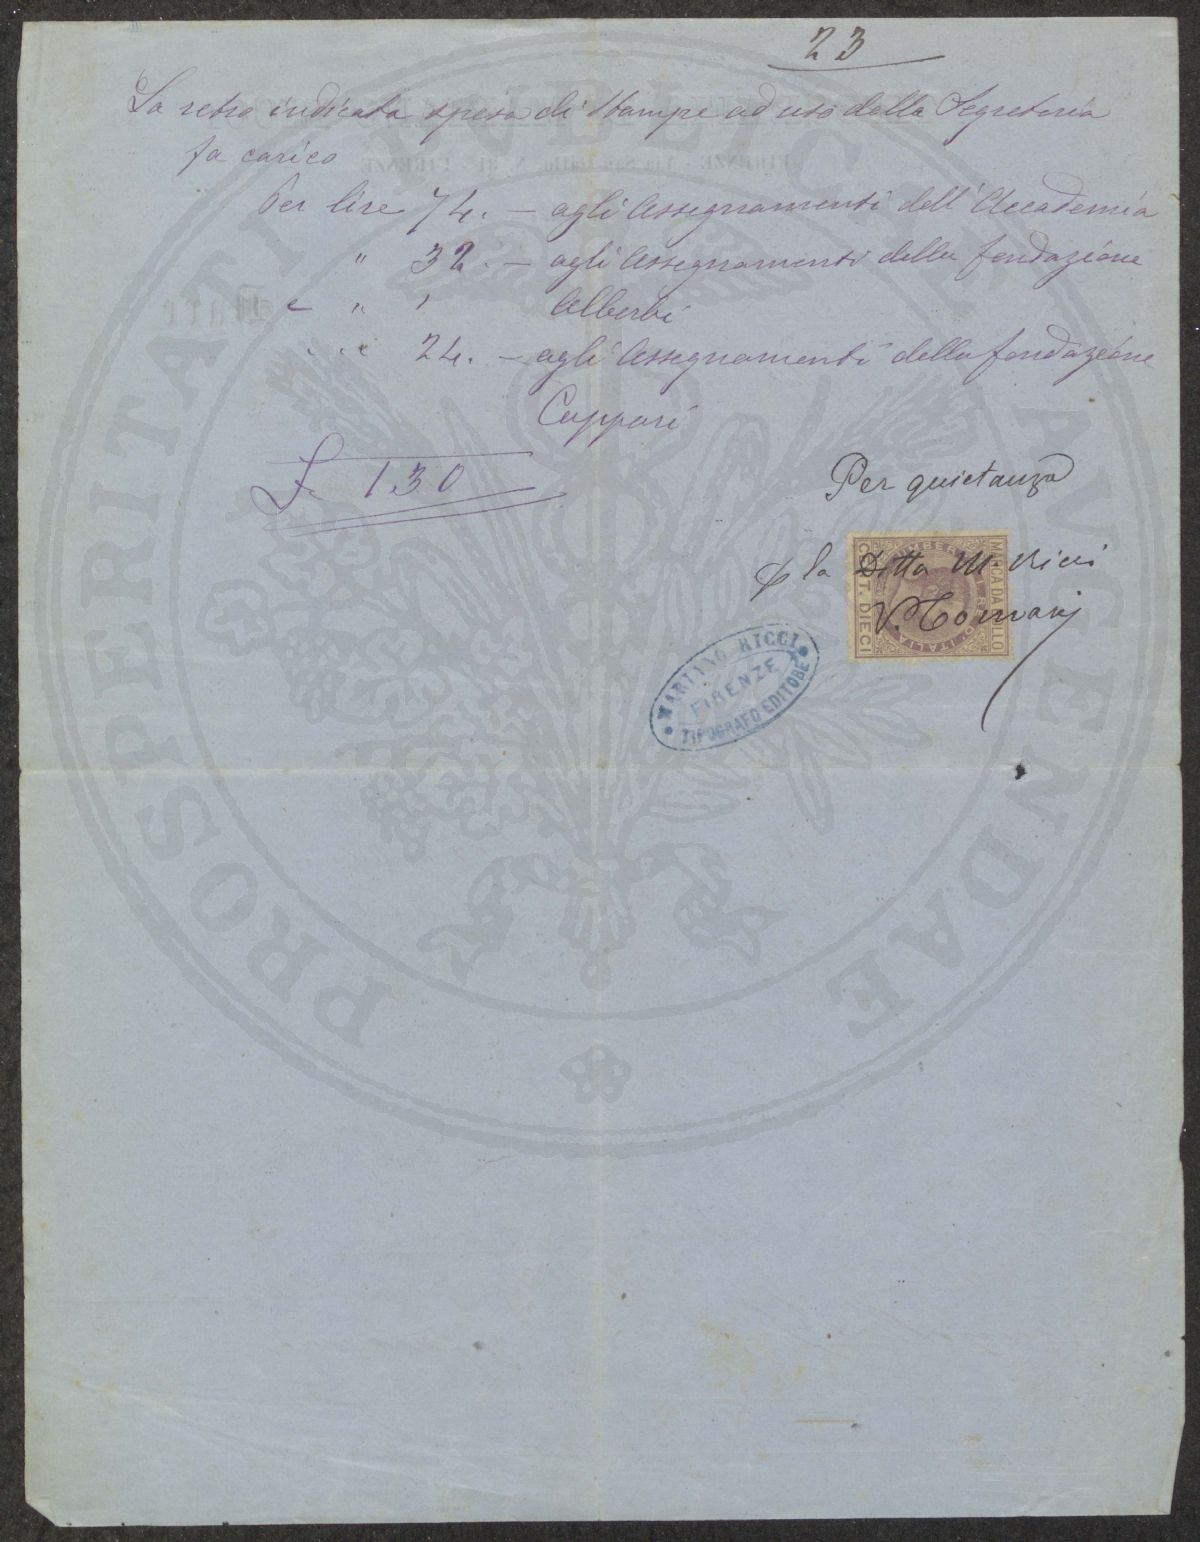 23
La retro indicata spesa di Stampe ad uso della Segreteria
fa carico
Per lire 74. — agli Assegnamenti dell'Accademia
" 32. — agli Assegnamenti della fondazione
e " " Alberti
" " 24. — agli Assegnamenti della fondazione
Cuppari
£ 130
Per quietanza
p la Ditta M. Ricci
MARCA DA BOLLO
UMBERTO I RE D'ITALIA
CENT. DIECI
MARIANO RICCI
FIRENZE
TIPOGRAFO EDITORE
PROSPERITATI PVBLICAE AVGENDAE